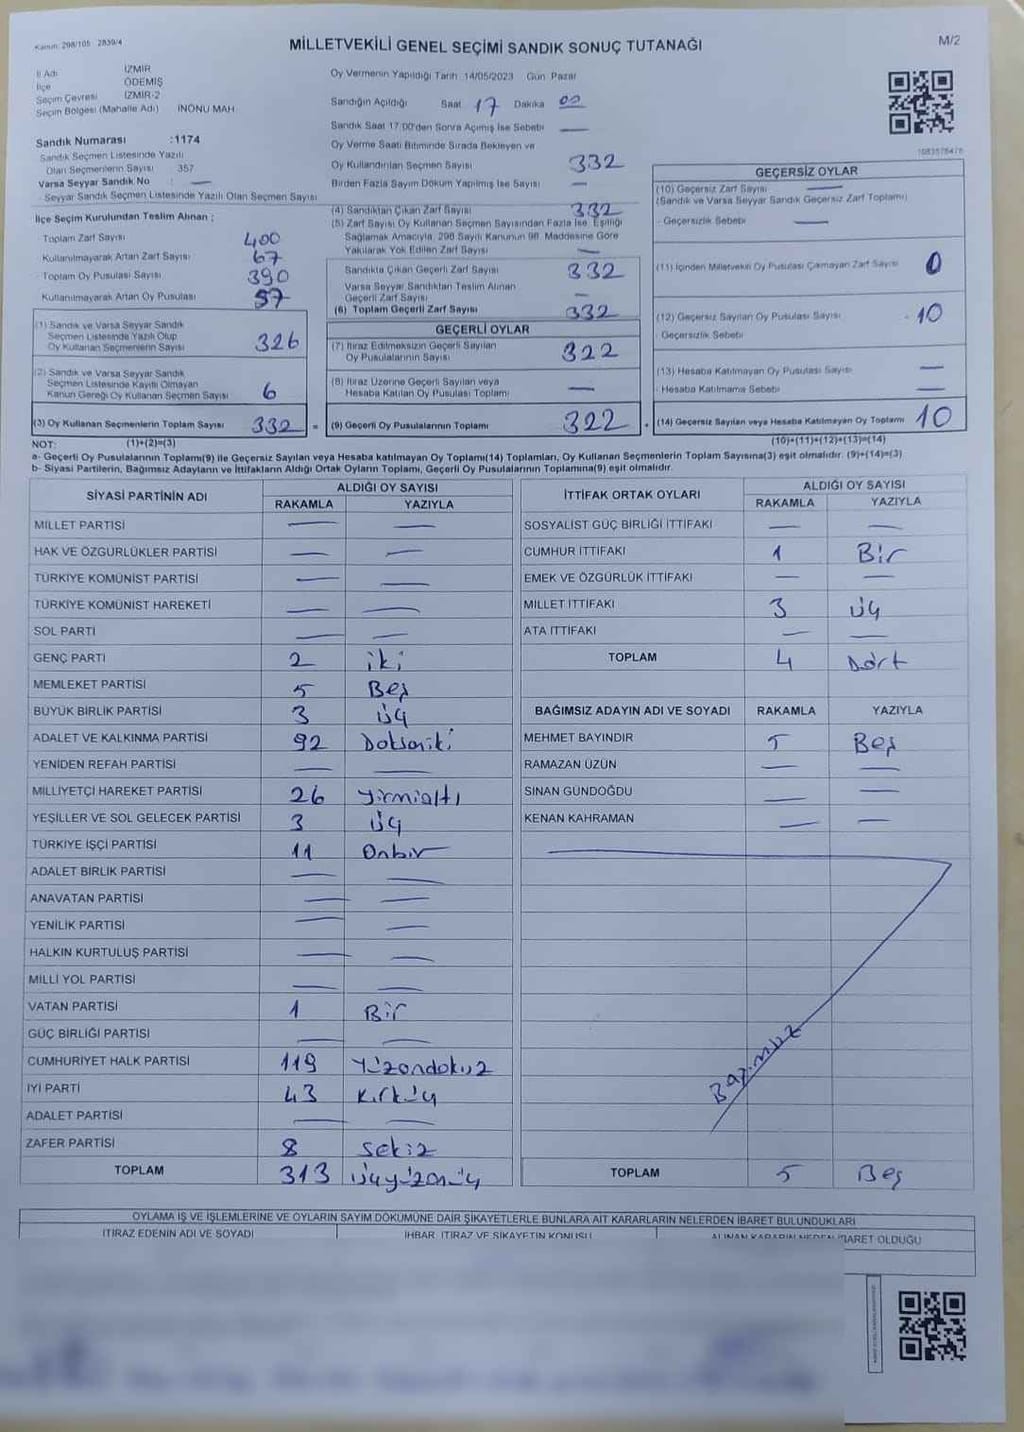 Kanun: 298/105 2839/4
MİLLETVEKİLİ GENEL SEÇİMİ SANDIK SONUÇ TUTANAĞI
M/2
İl Adı İZMİR
İlçe ÖDEMİŞ
Seçim Çevresi İZMİR-2
Seçim Bölgesi (Mahalle Adı) İNÖNÜ MAH.
Oy Vermenin Yapıldığı Tarih 14/05/2023 Gün Pazar
Sandığın Açıldığı Saat 17 Dakika 00
Sandık Saat 17:00'den Sonra Açımış İse Sebebi —
Oy Verme Saati Bitiminde Sırada Bekleyen ve
Oy Kullandırılan Seçmen Sayısı 332
Birden Fazla Sayım Döküm Yapılmış İse Sayısı —
Sandık Numarası :1174
Sandık Seçmen Listesinde Yazılı
Olan Seçmenlerin Sayısı 357
Varsa Seyyar Sandık No : —
Seyyar Sandık Seçmen Listesinde Yazılı Olan Seçmen Sayısı
İlçe Seçim Kurulundan Teslim Alınan ;
Toplam Zarf Sayısı 400
Kullanılmayarak Artan Zarf Sayısı 67
Toplam Oy Pusulası Sayısı 390
Kullanılmayarak Artan Oy Pusulası 57
(1) Sandık ve Varsa Seyyar Sandık
Seçmen Listesinde Yazılı Olup
Oy Kullanan Seçmenlerin Sayısı 326
(2) Sandık ve Varsa Seyyar Sandık
Seçmen Listesinde Kayıtlı Olmayan
Kanun Gereği Oy Kullanan Seçmen Sayısı 6
(3) Oy Kullanan Seçmenlerin Toplam Sayısı 332 =
(4) Sandıktan Çıkan Zarf Sayısı 332
(5) Zarf Sayısı Oy Kullanan Seçmen Sayısından Fazla İse, Eşitliği
Sağlamak Amacıyla, 298 Sayılı Kanunun 98. Maddesine Göre
Yakılarak Yok Edilen Zarf Sayısı —
Sandıkta Çıkan Geçerli Zarf Sayısı 332
Varsa Seyyar Sandıktan Teslim Alınan
Geçerli Zarf Sayısı —
(6) Toplam Geçerli Zarf Sayısı 332
GEÇERLİ OYLAR
(7) İtiraz Edilmeksizin Geçerli Sayılan
Oy Pusulalarının Sayısı 322
(8) İtiraz Üzerine Geçerli Sayılan veya
Hesaba Katılan Oy Pusulası Toplamı —
(9) Geçerli Oy Pusulalarının Toplamı 322 +
GEÇERSİZ OYLAR
(10) Geçersiz Zarf Sayısı —
(Sandık ve Varsa Seyyar Sandık Geçersiz Zarf Toplamı)
Geçersizlik Sebebi —
(11) İçinden Milletvekili Oy Pusulası Çıkmayan Zarf Sayısı 0
(12) Geçersiz Sayılan Oy Pusulası Sayısı 10
Geçersizlik Sebebi
(13) Hesaba Katılmayan Oy Pusulası Sayısı —
Hesaba Katılmama Sebebi —
(14) Geçersiz Sayılan veya Hesaba Katılmayan Oy Toplamı 10
NOT: (1)+(2)=(3) (10)+(11)+(12)+(13)=(14)
a- Geçerli Oy Pusulalarının Toplamı(9) ile Geçersiz Sayılan veya Hesaba katılmayan Oy Toplamı(14) Toplamları, Oy Kullanan Seçmenlerin Toplam Sayısına(3) eşit olmalıdır. (9)+(14)=(3)
b- Siyasi Partilerin, Bağımsız Adayların ve İttifakların Aldığı Ortak Oyların Toplamı, Geçerli Oy Pusulalarının Toplamına(9) eşit olmalıdır.
SİYASİ PARTİNİN ADI ALDIĞI OY SAYISI
RAKAMLA YAZIYLA
MİLLET PARTİSİ — —
HAK VE ÖZGÜRLÜKLER PARTİSİ — —
TÜRKİYE KOMÜNİST PARTİSİ — —
TÜRKİYE KOMÜNİST HAREKETİ — —
SOL PARTİ — —
GENÇ PARTİ 2 iki
MEMLEKET PARTİSİ 5 Beş
BÜYÜK BİRLİK PARTİSİ 3 üç
ADALET VE KALKINMA PARTİSİ 92 Doksaniki
YENİDEN REFAH PARTİSİ — —
MİLLİYETÇİ HAREKET PARTİSİ 26 yirmialtı
YEŞİLLER VE SOL GELECEK PARTİSİ 3 üç
TÜRKİYE İŞÇİ PARTİSİ 11 Onbir
ADALET BİRLİK PARTİSİ — —
ANAVATAN PARTİSİ — —
YENİLİK PARTİSİ — —
HALKIN KURTULUŞ PARTİSİ — —
MİLLİ YOL PARTİSİ — —
VATAN PARTİSİ 1 Bir
GÜÇ BİRLİĞİ PARTİSİ — —
CUMHURİYET HALK PARTİSİ 119 Yüzondokuz
İYİ PARTİ 43 Kırküç
ADALET PARTİSİ — —
ZAFER PARTİSİ 8 Sekiz
TOPLAM 313 üçyüzonüç
İTTİFAK ORTAK OYLARI ALDIĞI OY SAYISI
RAKAMLA YAZIYLA
SOSYALİST GÜÇ BİRLİĞİ İTTİFAKI — —
CUMHUR İTTİFAKI 1 Bir
EMEK VE ÖZGÜRLÜK İTTİFAKI — —
MİLLET İTTİFAKI 3 üç
ATA İTTİFAKI — —
TOPLAM 4 Dört
BAĞIMSIZ ADAYIN ADI VE SOYADI RAKAMLA YAZIYLA
MEHMET BAYINDIR 5 Beş
RAMAZAN ÜZÜN — —
SİNAN GÜNDOĞDU — —
KENAN KAHRAMAN — —
TOPLAM 5 Beş
OYLAMA İŞ VE İŞLEMLERİNE VE OYLARIN SAYIM DÖKÜMÜNE DAİR ŞİKAYETLERLE BUNLARA AİT KARARLARIN NELERDEN İBARET BULUNDUKLARI
İTİRAZ EDENİN ADI VE SOYADI İHBAR, İTİRAZ VE ŞİKAYETİN KONUSU ALINAN KARARIN NEDEN İBARET OLDUĞU